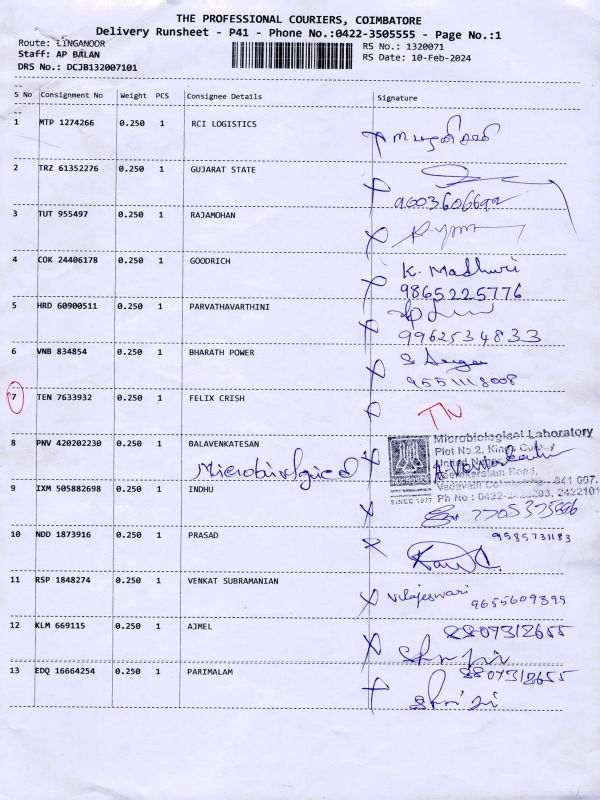 THE PROFESSIONAL COURIERS, COIMBATORE
Delivery Runsheet - P41 - Phone No.:0422-3505555 - Page No.:1
Route: LINGANOOR
Staff: AP BALAN
DRS No.: DCJB132007101
RS No.: 1320071
RS Date: 10-Feb-2024
S No Consignment No Weight PCS Consignee Details Signature
1 MTP 1274266 0.250 1 RCI LOGISTICS
2 TRZ 61352276 0.250 1 GUJARAT STATE
9003606692
3 TUT 955497 0.250 1 RAJAMOHAN
4 COK 24406178 0.250 1 GOODRICH K. Madhuri
9865225776
5 HRD 60900511 0.250 1 PARVATHAVARTHINI
9962534833
6 VNB 834854 0.250 1 BHARATH POWER
9551118008
7 TEN 7633932 0.250 1 FELIX CRISH
TN
8 PNV 420202230 0.250 1 BALAVENKATESAN
Microbiological
Microbiological Laboratory
Plot No.2, Kings Colony
Road,
641 007.
SINCE 1977 Ph No : 0422-
9 IXM 505882698 0.250 1 INDHU
7705375886
10 NDD 1873916 0.250 1 PRASAD 9585731183
11 RSP 1848274 0.250 1 VENKAT SUBRAMANIAN Vilajeswari
9655609399
12 KLM 669115 0.250 1 AJMEL 8807312655
13 EDQ 16664254 0.250 1 PARIMALAM 8807312655